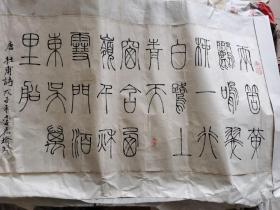 兩箇黃
鸝鳴翠
柳一行
白鷺上
青天
窗含西
嶺千秋
雪門泊
東吳萬
里船
唐杜甫詩